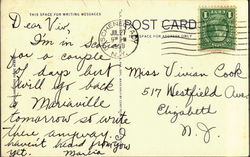 THIS SPACE FOR WRITING MESSAGES
POST CARD
THIS SPACE FOR ADDRESS ONLY
Dear Viv,
I'm in Scotia
for a couple
of days but
will go back
to Mariaville
tomorrow so write
there anyway. I
haven't heard from you
yet.
Miss Vivian Cook
517 Westfield Ave.
Elizabeth
N. J.
1